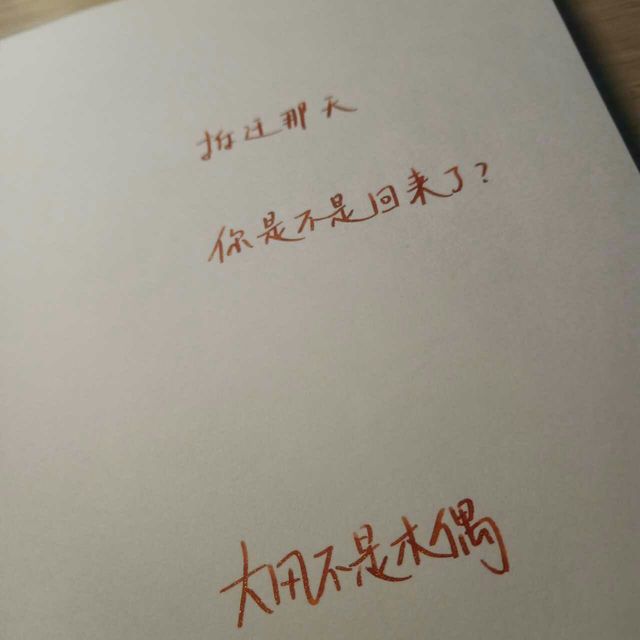 拆迁那天
你是不是回来了?
大田不是木偶